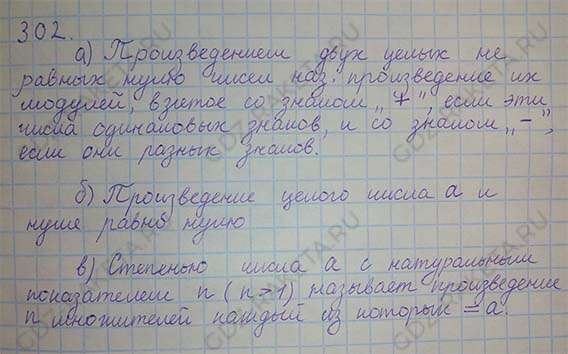 302.
а) Произведением двух целых не
равных нулю чисел наз. произведение их
модулей, взятое со знаком „+", если эти
числа одинаковых знаков, и со знаком „-",
если они разных знаков.
б) Произведение целого числа а и
нуля равно нулю
в) Степенью числа а с натуральным
показателем n (n>1) называет произведение
n множителей каждый из которых = а.
GDZRAKETA.RU